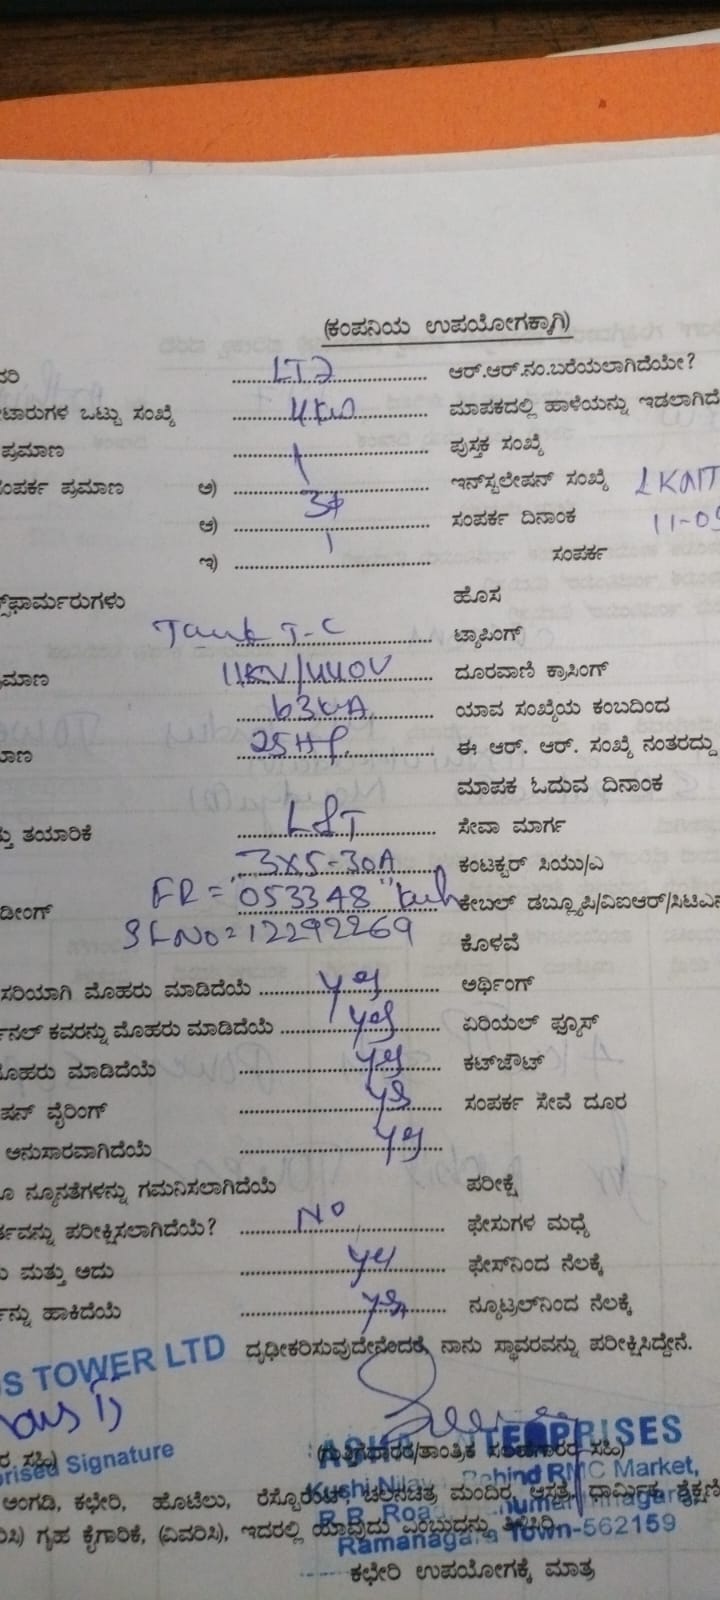 (ಕಂಪನಿಯ ಉಪಯೋಗಕ್ಕಾಗಿ)
LT2 ಆರ್.ಆರ್.ನಂ.ಬರೆಯಲಾಗಿದೆಯೇ?
ಟಾರುಗಳ ಒಟ್ಟು ಸಂಖ್ಯೆ 4KW ಮಾಪಕದಲ್ಲಿ ಹಾಳೆಯನ್ನು ಇಡಲಾಗಿದೆ
ಪ್ರಮಾಣ 1 ಪುಸ್ತಕ ಸಂಖ್ಯೆ
ಸಂಪರ್ಕ ಪ್ರಮಾಣ ಅ) ಇನ್‌ಸ್ಟಲೇಷನ್ ಸಂಖ್ಯೆ
ಆ) 3ϕ ಸಂಪರ್ಕ ದಿನಾಂಕ 11-0
ಇ) 1 ಸಂಪರ್ಕ
ಫಾರ್ಮರುಗಳು ಹೊಸ
Tank T-C ಟ್ಯಾಪಿಂಗ್
ಮಾಣ 11KV/440V ದೂರವಾಣಿ ಕ್ರಾಸಿಂಗ್
63KVA ಯಾವ ಸಂಖ್ಯೆಯ ಕಂಬದಿಂದ
ಮಾಣ 25HP ಈ ಆರ್. ಆರ್. ಸಂಖ್ಯೆ ನಂತರದ್ದು
ಮಾಪಕ ಓದುವ ದಿನಾಂಕ
ತಯಾರಿಕೆ L&T ಸೇವಾ ಮಾರ್ಗ
3X5-30A ಕಂಟಕ್ಟರ್ ಸಿಯು/ಎ
ಡೀಂಗ್ FR = "053348" kwh ಕೇಬಲ್ ಡಬ್ಲ್ಯೂಪಿ/ವಿಐಆರ್/ಸಿಟಿಎಸ್
SLNO=12292269 ಕೊಳವೆ
ಸರಿಯಾಗಿ ಮೊಹರು ಮಾಡಿದೆಯೆ yes ಅರ್ಥಿಂಗ್
ನಲ್ ಕವರನ್ನು ಮೊಹರು ಮಾಡಿದೆಯೆ yes ಏರಿಯಲ್ ಫ್ಯೂಸ್
ಮೊಹರು ಮಾಡಿದೆಯೆ yes ಕಟ್‌ಔಟ್
ಷನ್ ವೈರಿಂಗ್ yes ಸಂಪರ್ಕ ಸೇವೆ ದೂರ
ಅನುಸಾರವಾಗಿದೆಯೆ yes
ನ್ಯೂನತೆಗಳನ್ನು ಗಮನಿಸಲಾಗಿದೆಯೆ ಪರೀಕ್ಷೆ
ವನ್ನು ಪರೀಕ್ಷಿಸಲಾಗಿದೆಯೆ? NO ಫೇಸುಗಳ ಮಧ್ಯೆ
ಮತ್ತು ಅದು yes ಫೇಸ್‌ನಿಂದ ನೆಲಕ್ಕೆ
ನ್ನು ಹಾಕಿದೆಯೆ yes ನ್ಯೂಟ್ರಲ್‌ನಿಂದ ನೆಲಕ್ಕೆ
ದೃಢೀಕರಿಸುವುದೇನೆಂದರೆ, ನಾನು ಸ್ಥಾವರವನ್ನು ಪರೀಕ್ಷಿಸಿದ್ದೇನೆ.
S TOWER LTD
ENTERPRISES
ರ ಸಹಿ) (ಗುತ್ತಿಗೆದಾರರ/ತಾಂತ್ರಿಕ ಸಹಿ)
rised Signature
Behind RMC Market,
ಅಂಗಡಿ, ಕಛೇರಿ, ಹೊಟೇಲು, ರೆಸ್ಟೊರೆಂಟ್, ಚಲನಚಿತ್ರ ಮಂದಿರ, ಆಸ್ಪತ್ರೆ, ಧಾರ್ಮಿಕ, ಶೈಕ್ಷಣಿ
ಗೃಹ ಕೈಗಾರಿಕೆ, (ವಿವರಿಸಿ), ಇದರಲ್ಲಿ ಯಾವುದು ಎಂಬುದನ್ನು ತಿಳಿಸಿರಿ.
Ramanagara Town-562159
ಕಛೇರಿ ಉಪಯೋಗಕ್ಕೆ ಮಾತ್ರ